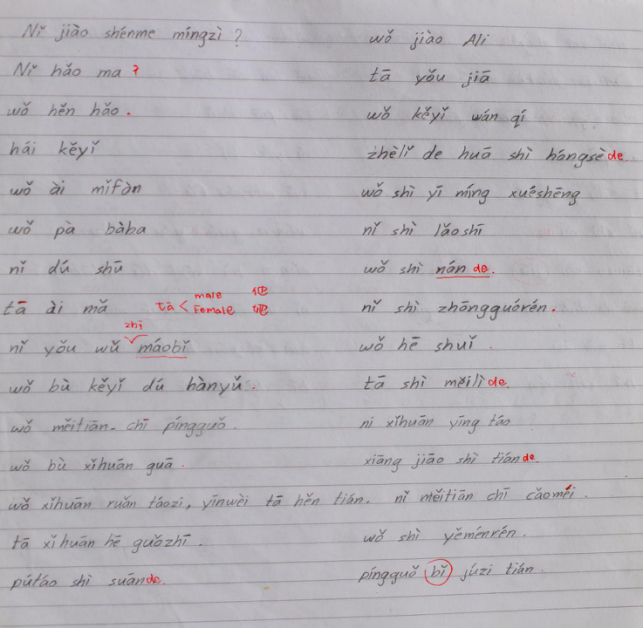 Nǐ jiào shénme míngzì ?
Nǐ hǎo ma ?
wǒ hěn hǎo .
hái kěyǐ
wǒ ài mǐfàn
wǒ pà bàba
nǐ dú shū
tā ài mǎ tā < male 他 Female 她
zhī
nǐ yǒu wǔ máobǐ
wǒ bù kěyǐ dú hànyǔ .
wǒ měitiān. chī píngguǒ .
wǒ bù xǐhuān guā .
wǒ xǐhuān ruǎn táozi, yīnwèi tā hěn tián. nǐ měitiān chī cǎoméi .
tā xǐhuān hē guǒzhī .
pútáo shì suān de.
wǒ jiào Ali
tā yǒu jiā
wǒ kěyǐ wán qí
zhèlǐ de huā shì hóngsè de
wǒ shì yī míng xuéshēng
nǐ shì lǎoshī
wǒ shì nán de.
nǐ shì zhōngguórén.
wǒ hē shuǐ .
tā shì měilì de.
ni xǐhuān yīng táo
xiāng jiāo shì tián de.
wǒ shì yěménrén.
píngguǒ bǐ júzi tián